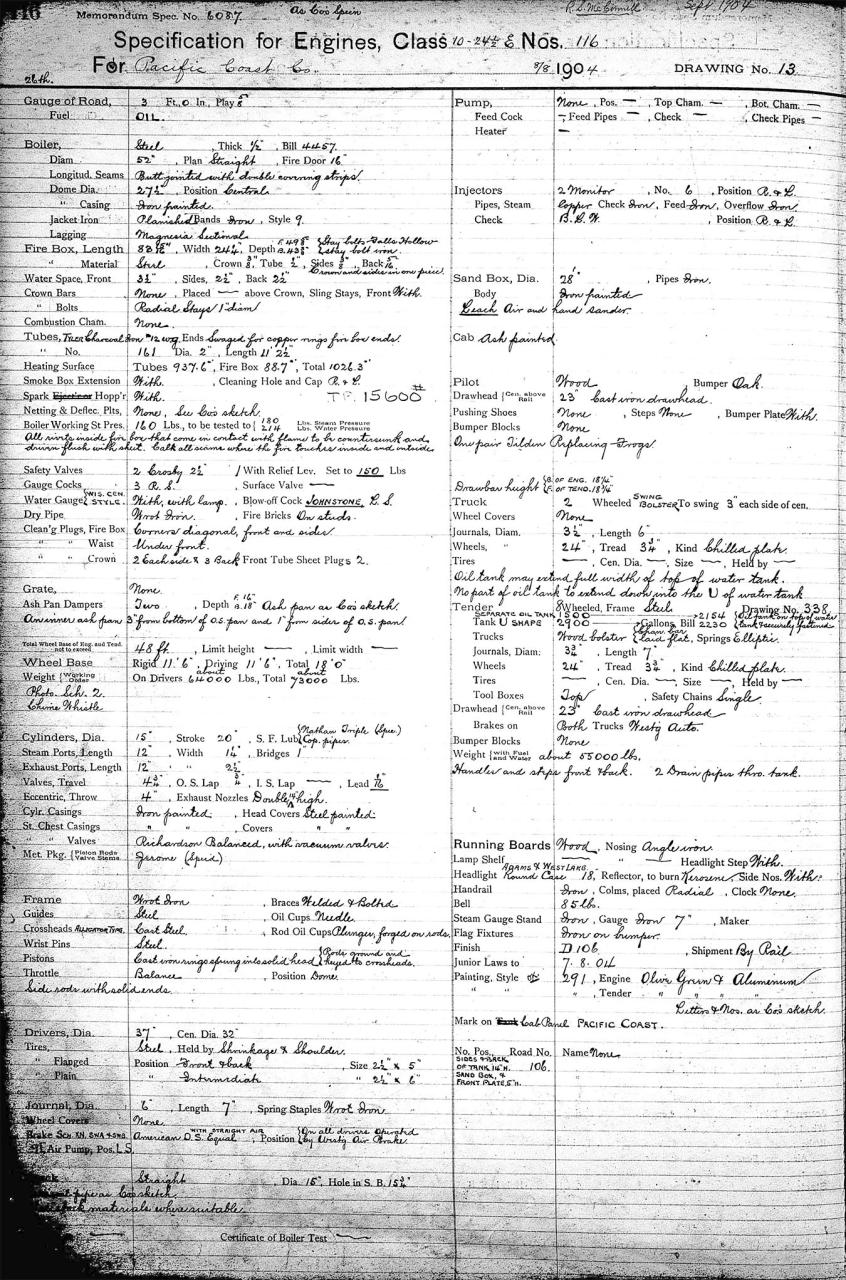 116
Memorandum Spec. No. 6087. As Co's Specn R. S. McConnell Sept 1904
Specification for Engines, Class 10-24½ E Nos. 116
For Pacific Coast Co. 8/8 1904 DRAWING No. 13
26th.
Gauge of Road, 3 Ft. 0 In., Play
Fuel OIL.
Boiler, Steel, Thick ½", Bill 4457.
Diam 52", Plan Straight, Fire Door 16"
Longitud. Seams Butt jointed with double covering strips.
Dome Dia. 27½", Position Central.
" Casing Iron painted.
Jacket Iron Planished Bands Iron, Style 9.
Lagging Magnesia Sectional
Fire Box, Length Width 24¼, Depth Stay bolts-Falls Hollow stay bolt iron.
" Material Steel, Crown ⅜", Tube ½", Sides Back Crown and sides in one piece.
Water Space, Front 3½", Sides, 2½", Back 2½"
Crown Bars None, Placed — above Crown, Sling Stays, Front With.
" Bolts Radial Stays 1" diam
Combustion Cham. None.
Tubes, Charcoal Iron #12 wg. Ends Swaged for copper rings fire box ends.
" No. 161 Dia. 2", Length 11' 2½"
Heating Surface Tubes 937.6", Fire Box 88.7", Total 1026.3"
Smoke Box Extension With. Cleaning Hole and Cap R. & L.
Spark Ejector or Hopp'r With. T.F. 15600#
Netting & Deflec. Plts, None, See Co's sketch.
Boiler Working St Pres. 160 Lbs., to be tested to 180 Lbs. Steam Pressure 214 Lbs. Water Pressure
All rivets inside fire box that come in contact with flame to be countersunk and
driven flush with sheet. Calk all seams where the fire touches inside and outside.
Safety Valves 2 Crosby 2½ With Relief Lev. Set to 150 Lbs
Gauge Cocks 3 R. S., Surface Valve —
Water Gauge WIS. CEN. STYLE. With, with lamp. Blow-off Cock JOHNSTONE, L. S.
Dry Pipe Wrot Iron. Fire Bricks On studs.
Clean'g Plugs, Fire Box Corners diagonal, front and sides
" " Waist Under front.
" " Crown 2 Each side & 3 Back Front Tube Sheet Plugs 2.
Grate, None.
Ash Pan Dampers Two, Depth F. 16" B. 18" Ash pan as Co's sketch.
An inner ash pan 3" from bottom of O.S. pan and 1" from sides of O.S. pan.
Total Wheel Base of Eng. and Tend. not to exceed 48 ft, Limit height — Limit width —
Wheel Base Rigid 11' 6", Driving 11' 6", Total 18' 0"
Weight Working Order On Drivers about 64000 Lbs., Total about 73000 Lbs.
Photo. Sch. 2.
Chime Whistle
Cylinders, Dia. 15", Stroke 20", S. F. Lub Nathan Triple (Spec.) Cop. pipes.
Steam Ports, Length 12", Width 1¼", Bridges 1"
Exhaust Ports, Length 12" " 2½"
Valves, Travel O. S. Lap I. S. Lap — , Lead
Eccentric, Throw 4", Exhaust Nozzles Double high.
Cylr. Casings Iron painted, Head Covers Steel painted.
St. Chest Casings " " Covers " "
" " Valves Richardson Balanced, with vacuum valves.
Met. Pkg. Piston Rods Valve Stems Jerome (Specd)
Frame Wrot Iron, Braces Welded & Bolted
Guides Steel, Oil Cups Needle.
Crossheads ALLIGATOR TYPE. Cast Steel, Rod Oil Cups Plunger, forged on rods.
Wrist Pins Steel.
Pistons Cast iron rings sprung into solid head, Rods ground and keyed to crossheads.
Throttle Balance, Position Dome.
Side rods with solid ends.
Drivers, Dia. 37", Cen. Dia. 32"
Tires, Steel, Held by Shrinkage & Shoulder.
" Flanged Position Front & back, Size 2½" x 5"
" Plain " Intermediate " 2½" x 6"
Journal, Dia. 6", Length 7", Spring Staples Wrot Iron
Wheel Covers None.
Brake American D. S. Equal WITH STRAIGHT AIR, Position On all drivers operated by Westg Air Brake
Air Pump, Pos. L S.
Straight, Dia. 15", Hole in S. B. 15¾"
pipe as Co's sketch.
materials where suitable.
Certificate of Boiler Test —
Pump, None, Pos. —, Top Cham. —, Bot. Cham. —
Feed Cock —, Feed Pipes —, Check —, Check Pipes —
Heater —
Injectors 2 Monitor, No. 6, Position R. & L.
Pipes, Steam Copper Check Iron, Feed Iron, Overflow Iron
Check B. L. W., Position R. & L.
Sand Box, Dia. 28", Pipes Iron.
Body Iron painted
Leach Air and hand sander.
Cab Ash painted.
Pilot Wood, Bumper Oak.
Drawhead Cen. above Rail 23" Cast iron drawhead.
Pushing Shoes None, Steps None, Bumper Plate With.
Bumper Blocks None
One pair Tilden Replacing Frogs.
Drawbar height B. OF ENG. 18¼" F. OF TEND. 18¼"
Truck 2 Wheeled SWING BOLSTER To swing 3" each side of cen.
Wheel Covers None.
Journals, Diam. 3½", Length 6"
Wheels, " 24", Tread 3¾", Kind Chilled plate.
Tires —, Cen. Dia. —, Size —, Held by —
Oil tank may extend full width of top of water tank.
No part of oil tank to extend down into the U of water tank
Tender 8 Wheeled, Frame Steel Drawing No. 338.
SEPARATE OIL TANK 1500 2154 Oil tank on top of water tank & securely fastened
Tank U SHAPE 2900 Gallons, Bill 2230
Trucks Wood bolster Chan. bar laid flat, Springs Elliptic.
Journals, Diam: 3¾", Length 7"
Wheels 24", Tread 3¾", Kind Chilled plate.
Tires —, Cen. Dia. —, Size —, Held by —
Tool Boxes Top, Safety Chains Single.
Drawhead Cen. above Rail 23" Cast iron drawhead
Brakes on Both Trucks Westg Auto.
Bumper Blocks None
Weight with Fuel and Water about 55000 lbs.
Handles and steps front & back. 2 Drain pipes thro. tank.
Running Boards Wood, Nosing Angle iron.
Lamp Shelf — " — Headlight Step With.
Headlight ADAMS & WESTLAKE Round Case 18, Reflector, to burn Kerosene, Side Nos. With.
Handrail Iron, Colms, placed Radial, Clock None.
Bell 85 lb.
Steam Gauge Stand Iron, Gauge Iron 7", Maker
Flag Fixtures Iron on bumper.
Finish D 106, Shipment By Rail
Junior Laws to 7. 8. 04
Painting, Style 291, Engine Olive Green & Alumenum
" " ", Tender " " " "
Letters & Nos. as Co's sketch.
Mark on Tank Cab Panel PACIFIC COAST.
No. Pos. Road No. Name None
SIDES & BACK OF TANK 14" H. 106.
SAND BOX, &
FRONT PLATE, 5" H.